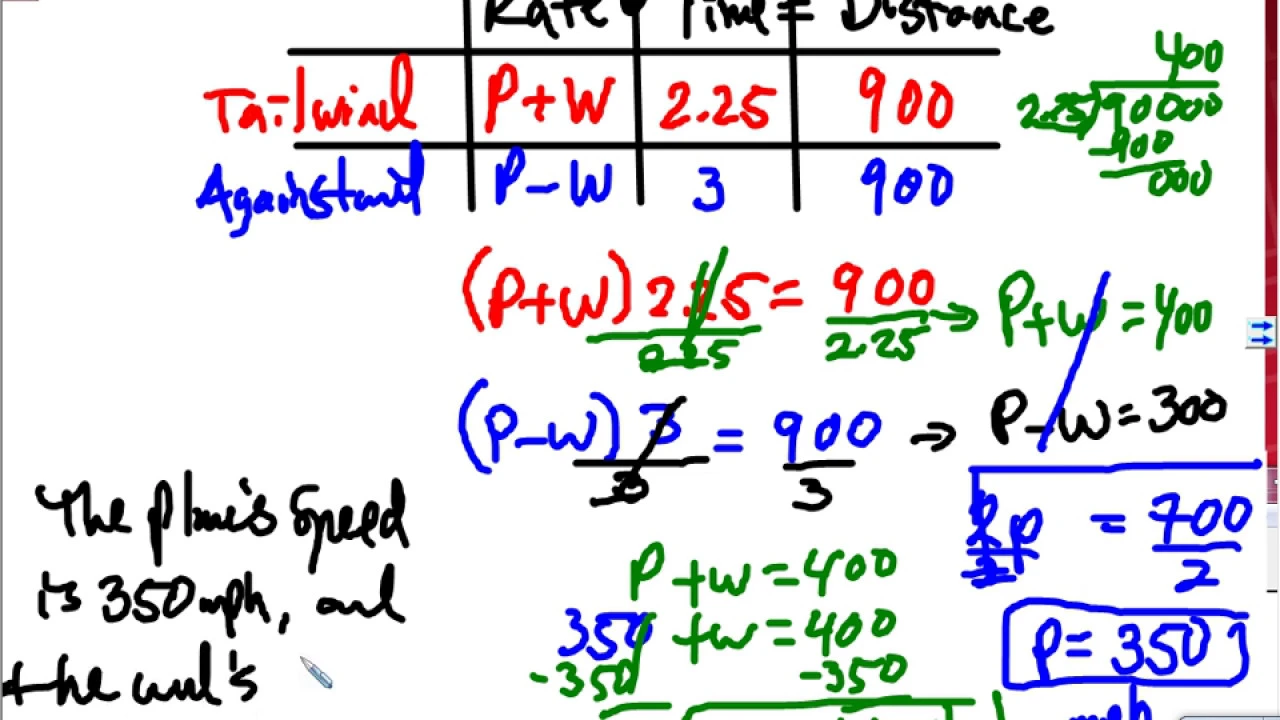 Rate • Time = Distance
Tailwind P+W 2.25 900
Against wind P-W 3 900
400
2.25)90000
-900
000
(P+W) 2.25 = 900 → P+W = 400
2.25 2.25
(P-W) 3 = 900 → P-W = 300
3 3
2P = 700
2 2
P = 350
mph
P + W = 400
350 + W = 400
-350 -350
The plane's speed
is 350 mph, and
the wind's